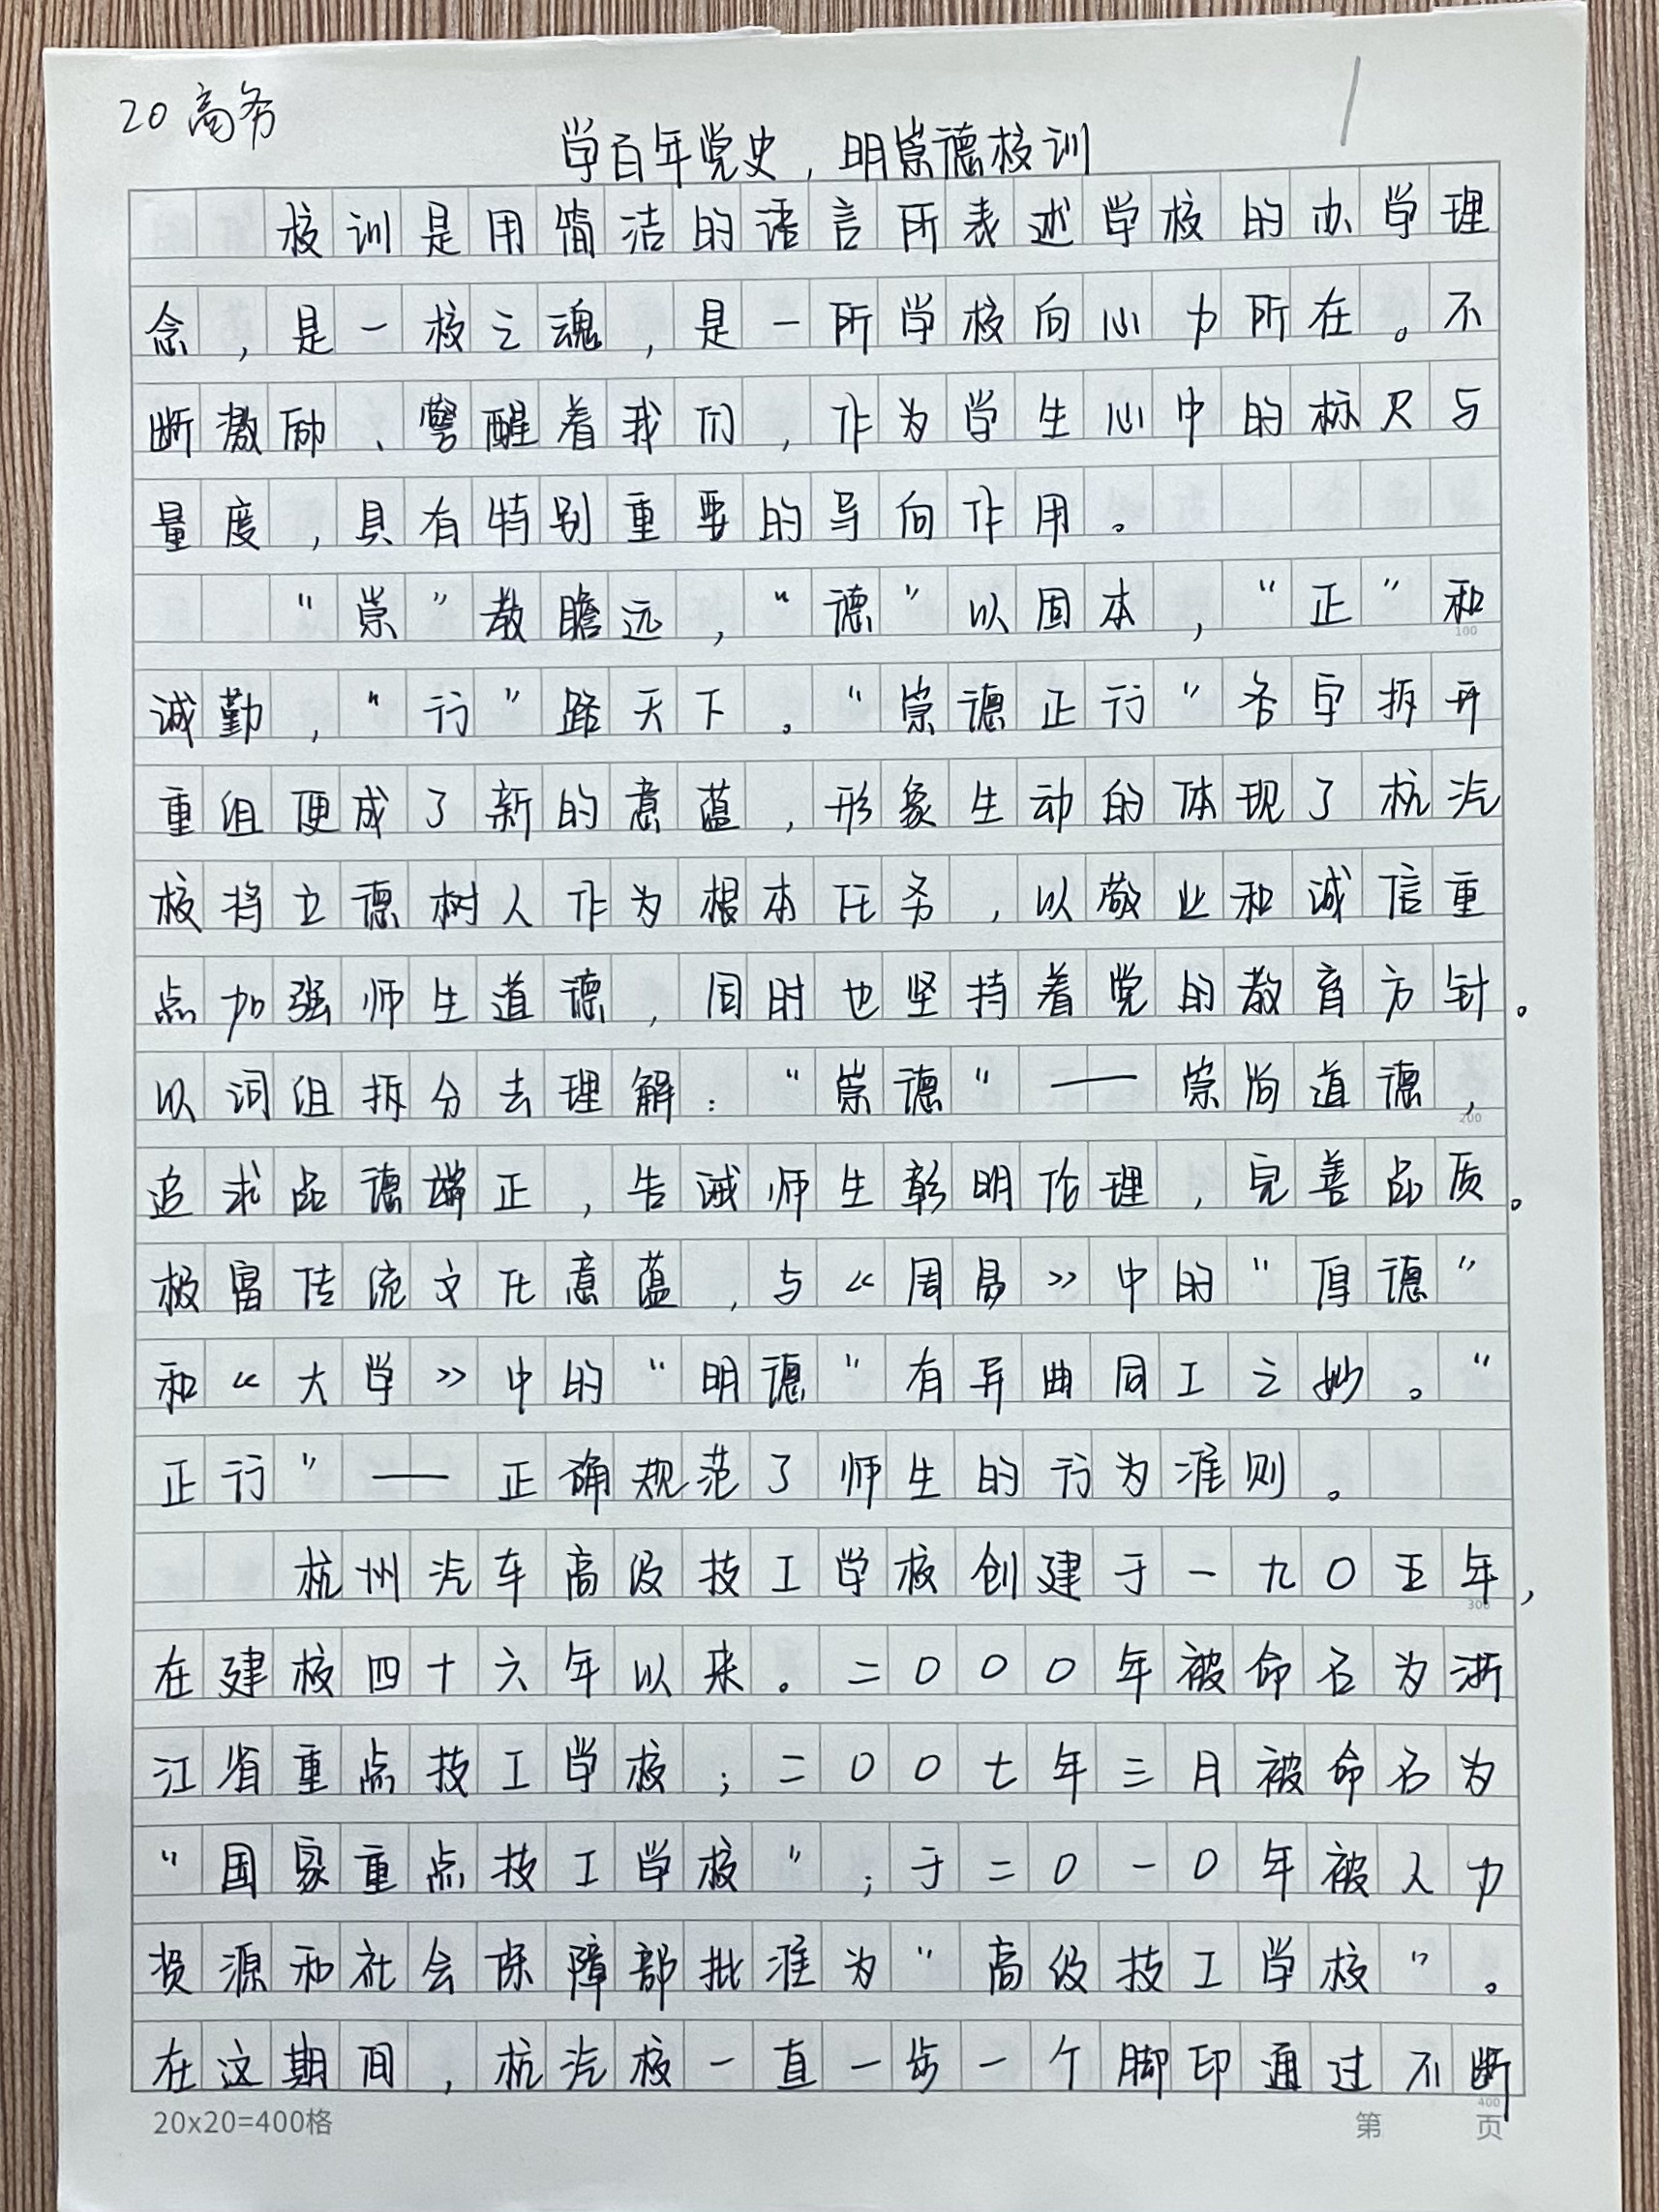 20高务
学百年党史，明崇德校训
校训是用简洁的语言所表述学校的办学理
念，是一校之魂，是一所学校向心力所在。不
断激励、警醒着我们，作为学生心中的标尺与
量度，具有特别重要的导向作用。
“崇”教瞻远，“德”以固本，“正”和
诚勤，“行”路天下。“崇德正行”各字拆开
重组便成了新的意蕴，形象生动的体现了杭汽
校将立德树人作为根本任务，以敬业和诚信重
点加强师生道德，同时也坚持着党的教育方针。
以词组拆分去理解：“崇德”——崇尚道德，
追求品德端正，告诫师生彰明伦理，完善品质。
极富传统文化意蕴，与《周易》中的“厚德”
和《大学》中的“明德”有异曲同工之妙。“
正行”——正确规范了师生的行为准则。
杭州汽车高级技工学校创建于一九〇五年，
在建校四十六年以来。二〇〇〇年被命名为浙
江省重点技工学校；二〇〇七年三月被命名为
“国家重点技工学校”；于二〇一〇年被人力
资源和社会保障部批准为“高级技工学校”。
在这期间，杭汽校一直一步一个脚印通过不断
20x20=400格
第 页
100
200
300
400